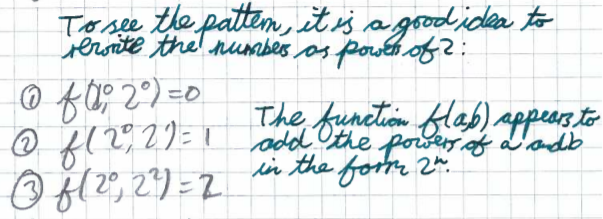 To see the pattern, it is a good idea to
rewrite the numbers as powers of 2:
① f(2⁰, 2⁰)=0
② f(2⁰, 2)=1
③ f(2⁰, 2²)=2
The function f(a,b) appears to
add the powers of a and b
in the form 2ⁿ.